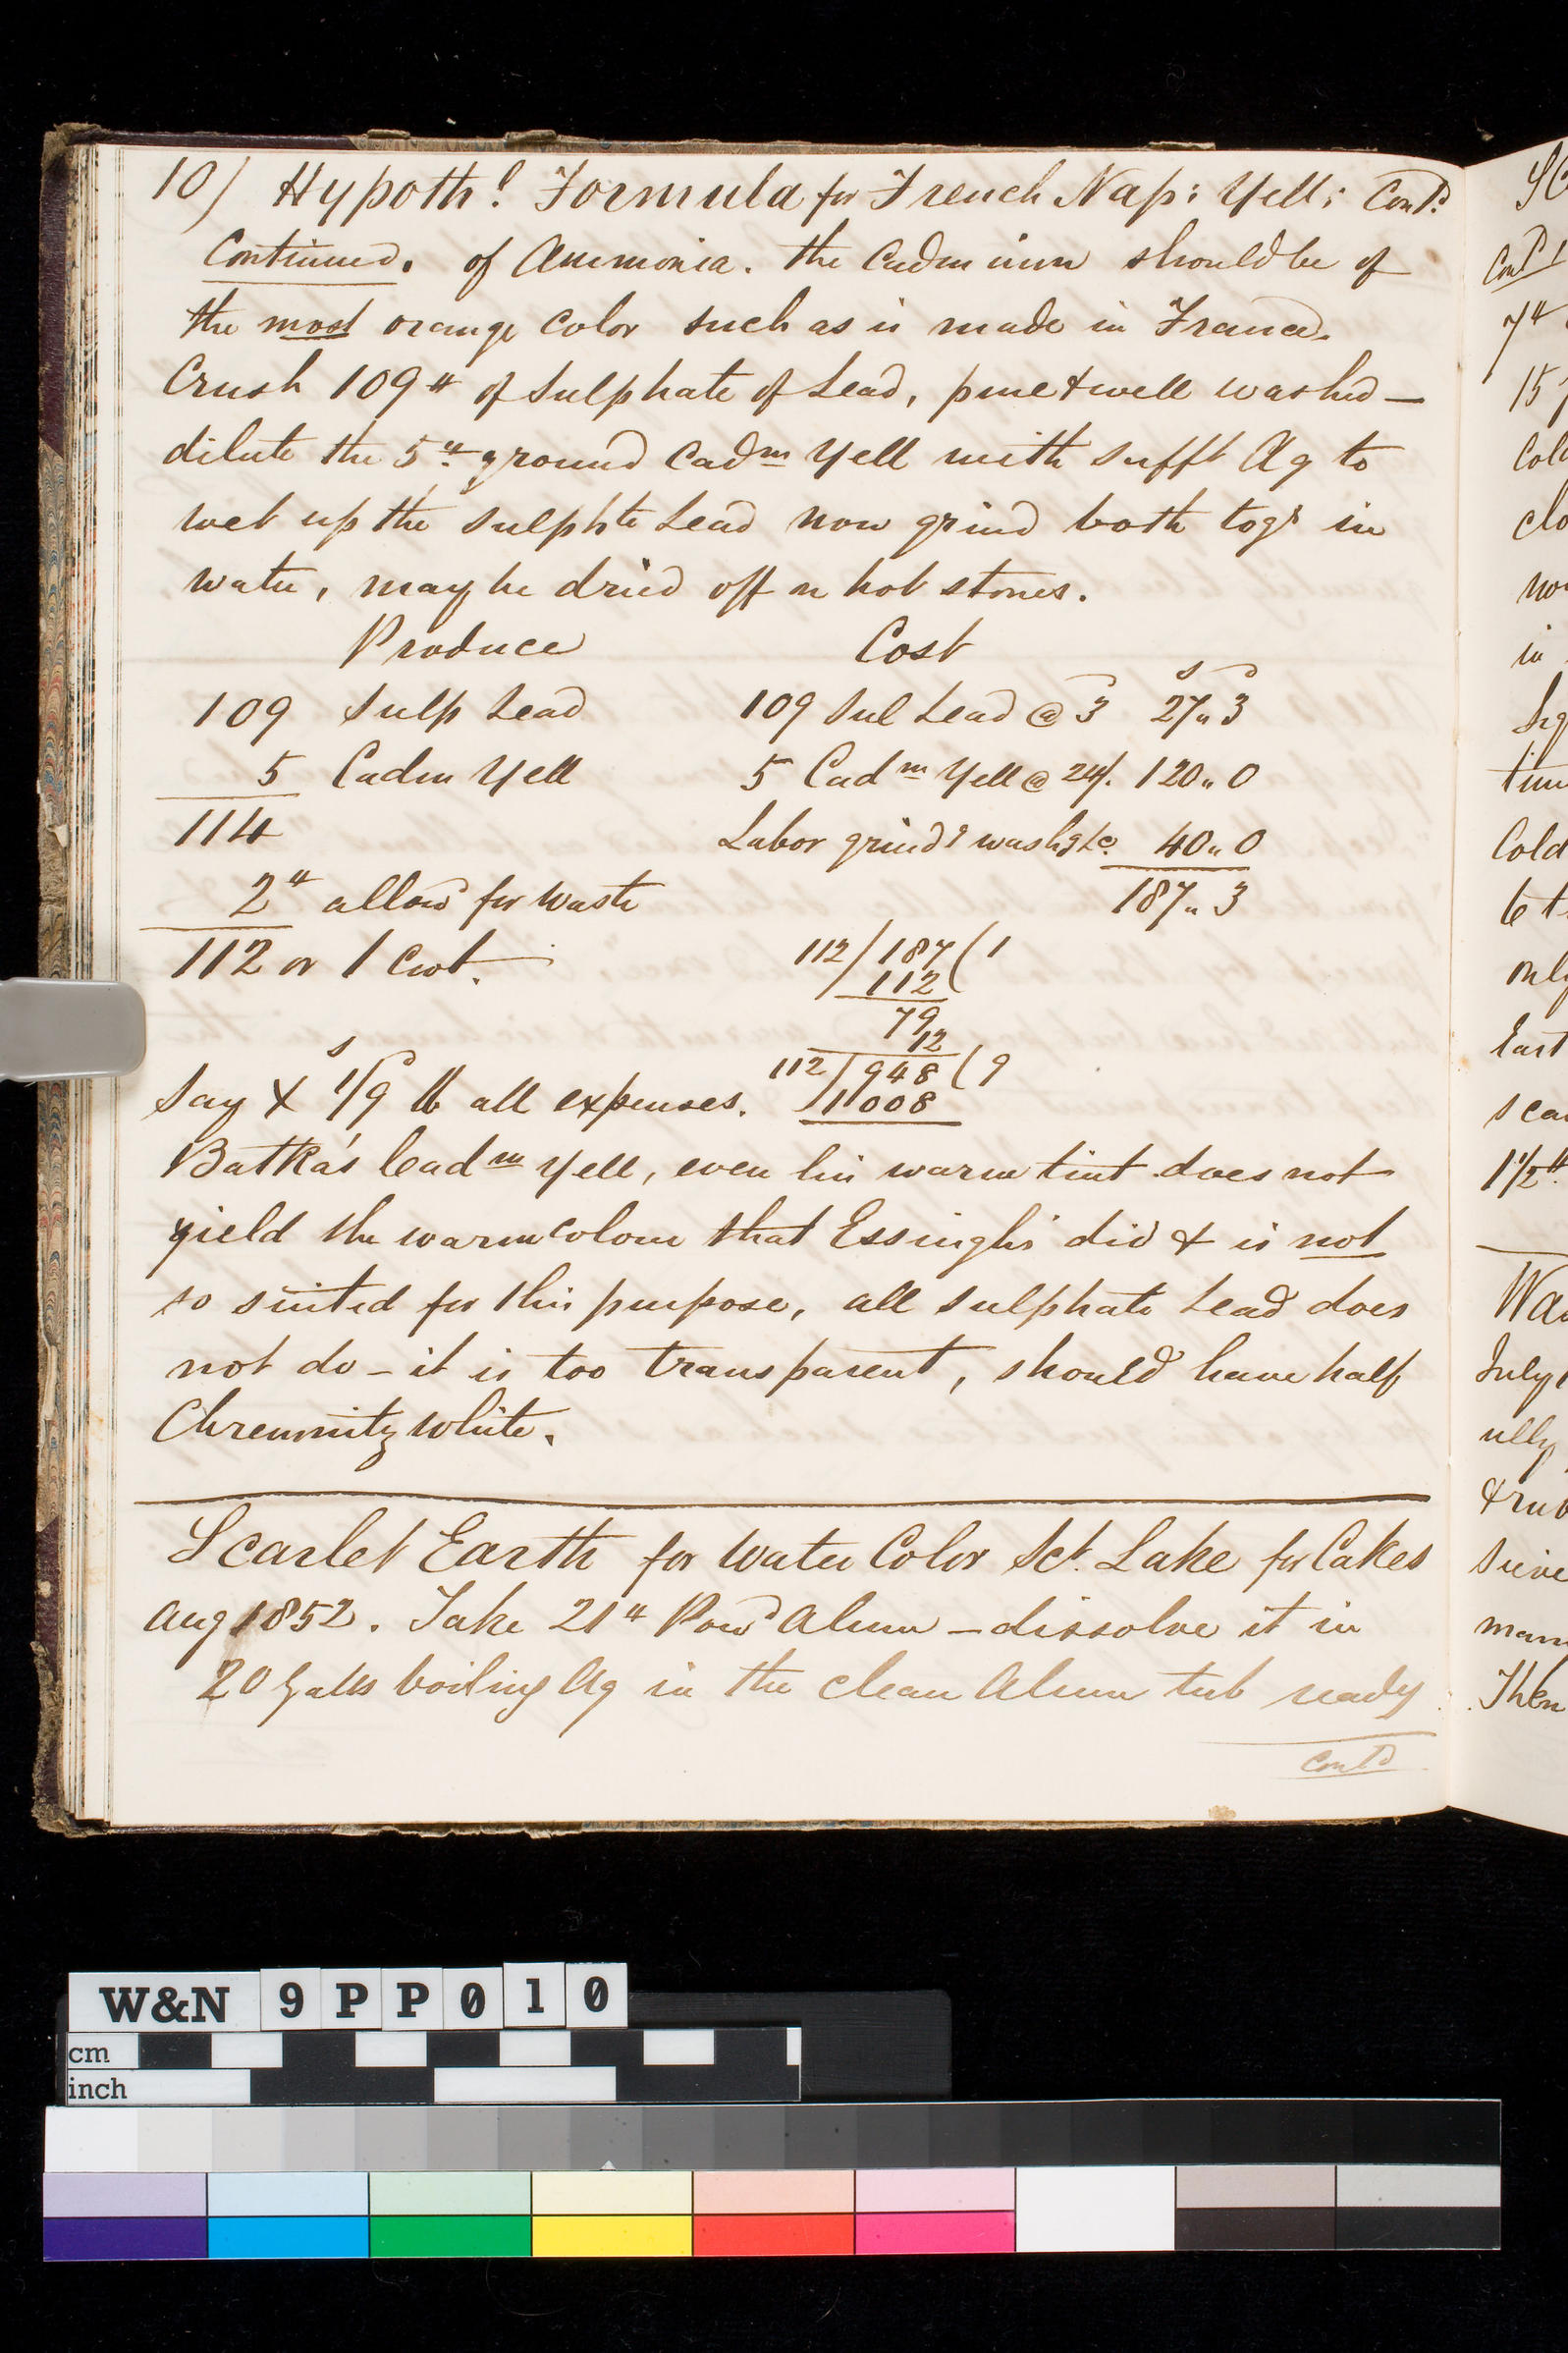 10) Hypoth! Formula for French Nap: Yell: Cont.d
Continued. of Ammonia. the Cadmium should be of
the most orange color such as is made in France.
Crush 109# of Sulphate of Lead, pure & well washed —
dilute the 5# ground Cadm Yell with sufft Aq to
wet up the sulphte Lead now grind both togr in
water, may be dried off on hot stones.
Produce Cost
s d
109 Sulp Lead 109 Sul Lead @ 3d 27" 3
5 Cadm Yell 5 Cadm Yell @ 24/. 120" 0
114 Labor grindg washg &c. 40" 0
2# allowd for waste 187" 3
112 or 1 Cwt. 112/187(1
112
79
12
112/948(9
Say X 1s/9d lb all expenses. 1008
Batka's Cadm Yell, even his warm tint does not
yield the warm colour that Essingh's did & is not
so suited for this purpose, all sulphate Lead does
not do – it is too transparent, should have half
Chremnitz white.
Scarlet Earth for Water Color Sct. Lake for Cakes
Aug 1852. Take 21# Powd Alum – dissolve it in
20 Galls boiling Aq in the clean Alum tub ready
Contd
Contd
7#
15
Cold
in
Cold
only
East
1 1/2#
July
sieve
Then
W&N 9PP010
cm
inch